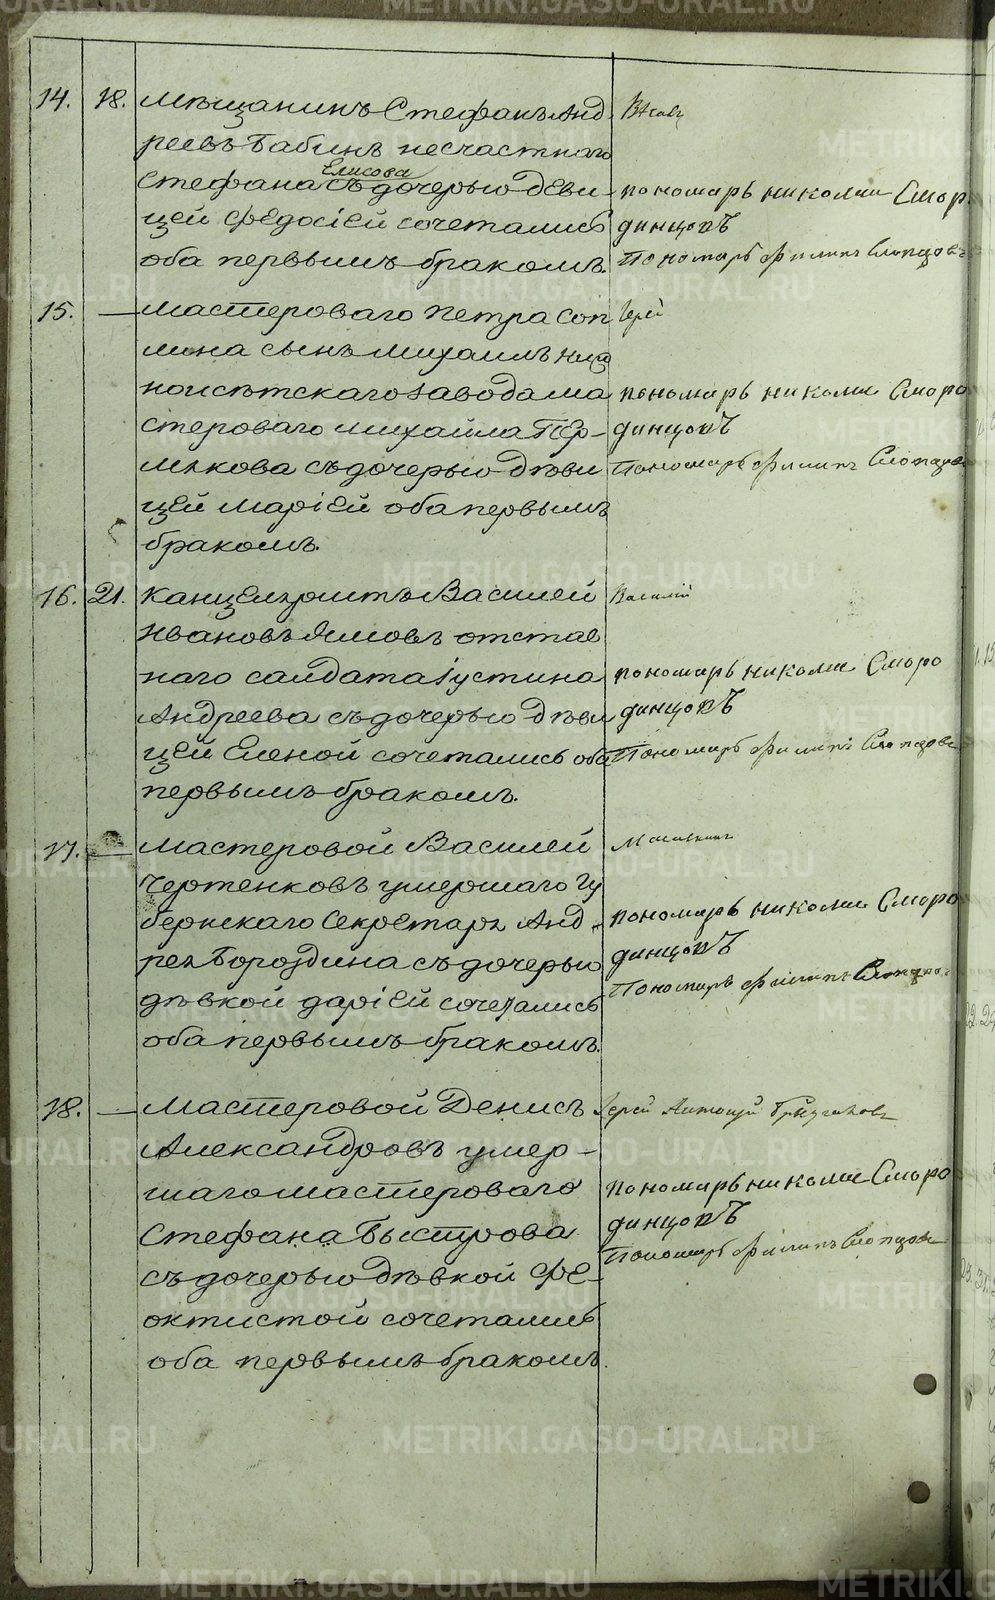 METRIKI.GASO-URAL.RU
14. 18. Мѣщанинъ Стефанъ Анд
реевъ Бабинъ несчастнаго
Елисова
Стефана съ дочерью деви
цей Федосіей сочетались
оба первымъ бракомъ.
пономарь николаи Сморо
динцовъ
Пономарь Филипъ Слопцовъ
15. — Мастероваго Петра Соп
лина сынъ Михаилъ Ниж
ноисѣтскаго завода ма
стероваго Михайла Пер-
мякова съ дочерью дѣви
цей Маріей оба первымъ
бракомъ.
Іерей
пономарь николаи Сморо
динцовъ
Пономарь Филипъ Слопцовъ
16. 21. Канцеляристъ Василей
Ивановъ Ямовъ отстав
наго салдата Іустина
Андреева съ дочерью дѣви
цей Еленой сочетались оба
первымъ бракомъ.
Василій
пономарь николаи Сморо
динцовъ
Пономарь Филипъ Слопцовъ
17. — Мастеровой Василей
Чертенковъ умершаго гу
бернскаго Секретаря Анд-
рея Бороздина съ дочерью
дѣвкой Даріей сочетались
оба первымъ бракомъ.
пономарь николаи Сморо
динцовъ
Пономарь Филипъ Слопцовъ
18. — Мастеровой Денисъ
Александровъ умер-
шаго мастероваго
Стефана Быстрова
съ дочерью дѣвкой Фе-
октистой сочетались
оба первымъ бракомъ.
Іерей Антоній
пономарь николаи Сморо
динцовъ
Пономарь Филипъ Слопцовъ